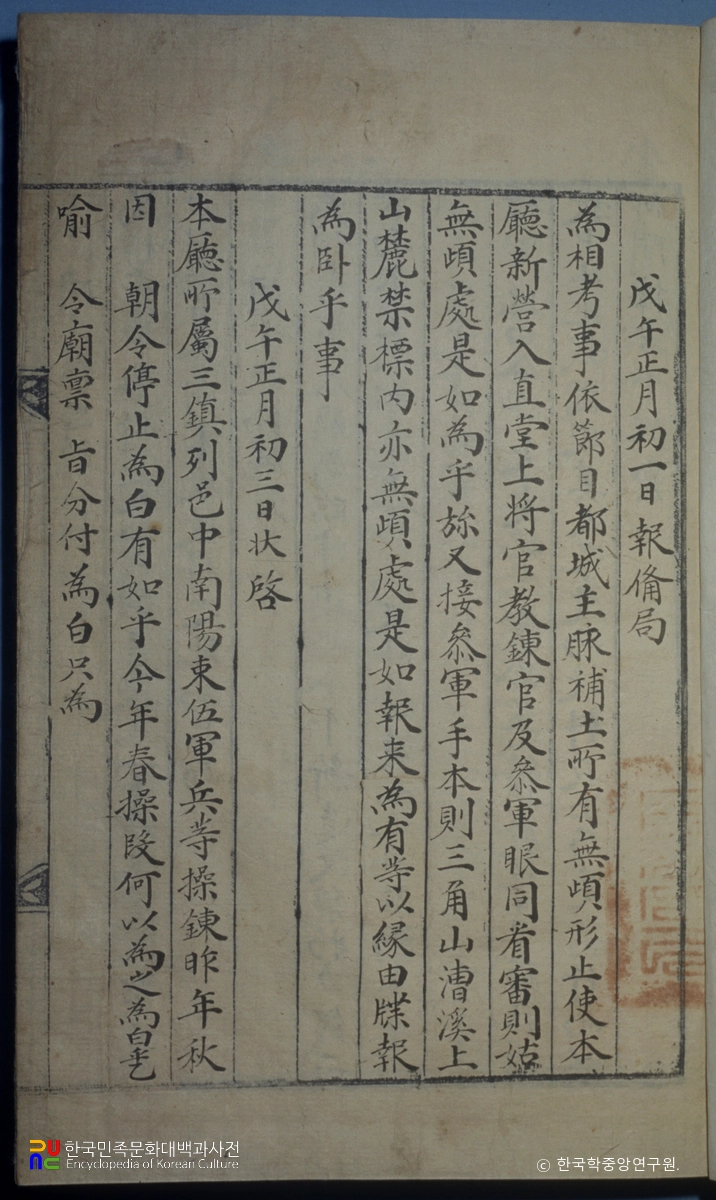 戊午正月初一日報俻局
為相考事依節目都城主脉補土所有無頉形止使本
廳新營入直堂上将官教鍊官及叅軍眼同看審則姑
無頉處是如為乎旀又接叅軍手本則三角山漕溪上
山麓禁標內亦無頉處是如報来為有等以緣由牒報
為卧乎事
戊午正月初三日状啓
本廳所屬三鎮列邑中南陽束伍軍兵等操鍊昨年秋
因 朝令停止為白有如乎今年春操段何以為之為白乎乙
喻 令廟禀 旨分付為白只為
한국민족문화대백과사전
Encyclopedia of Korean Culture
© 한국학중앙연구원.